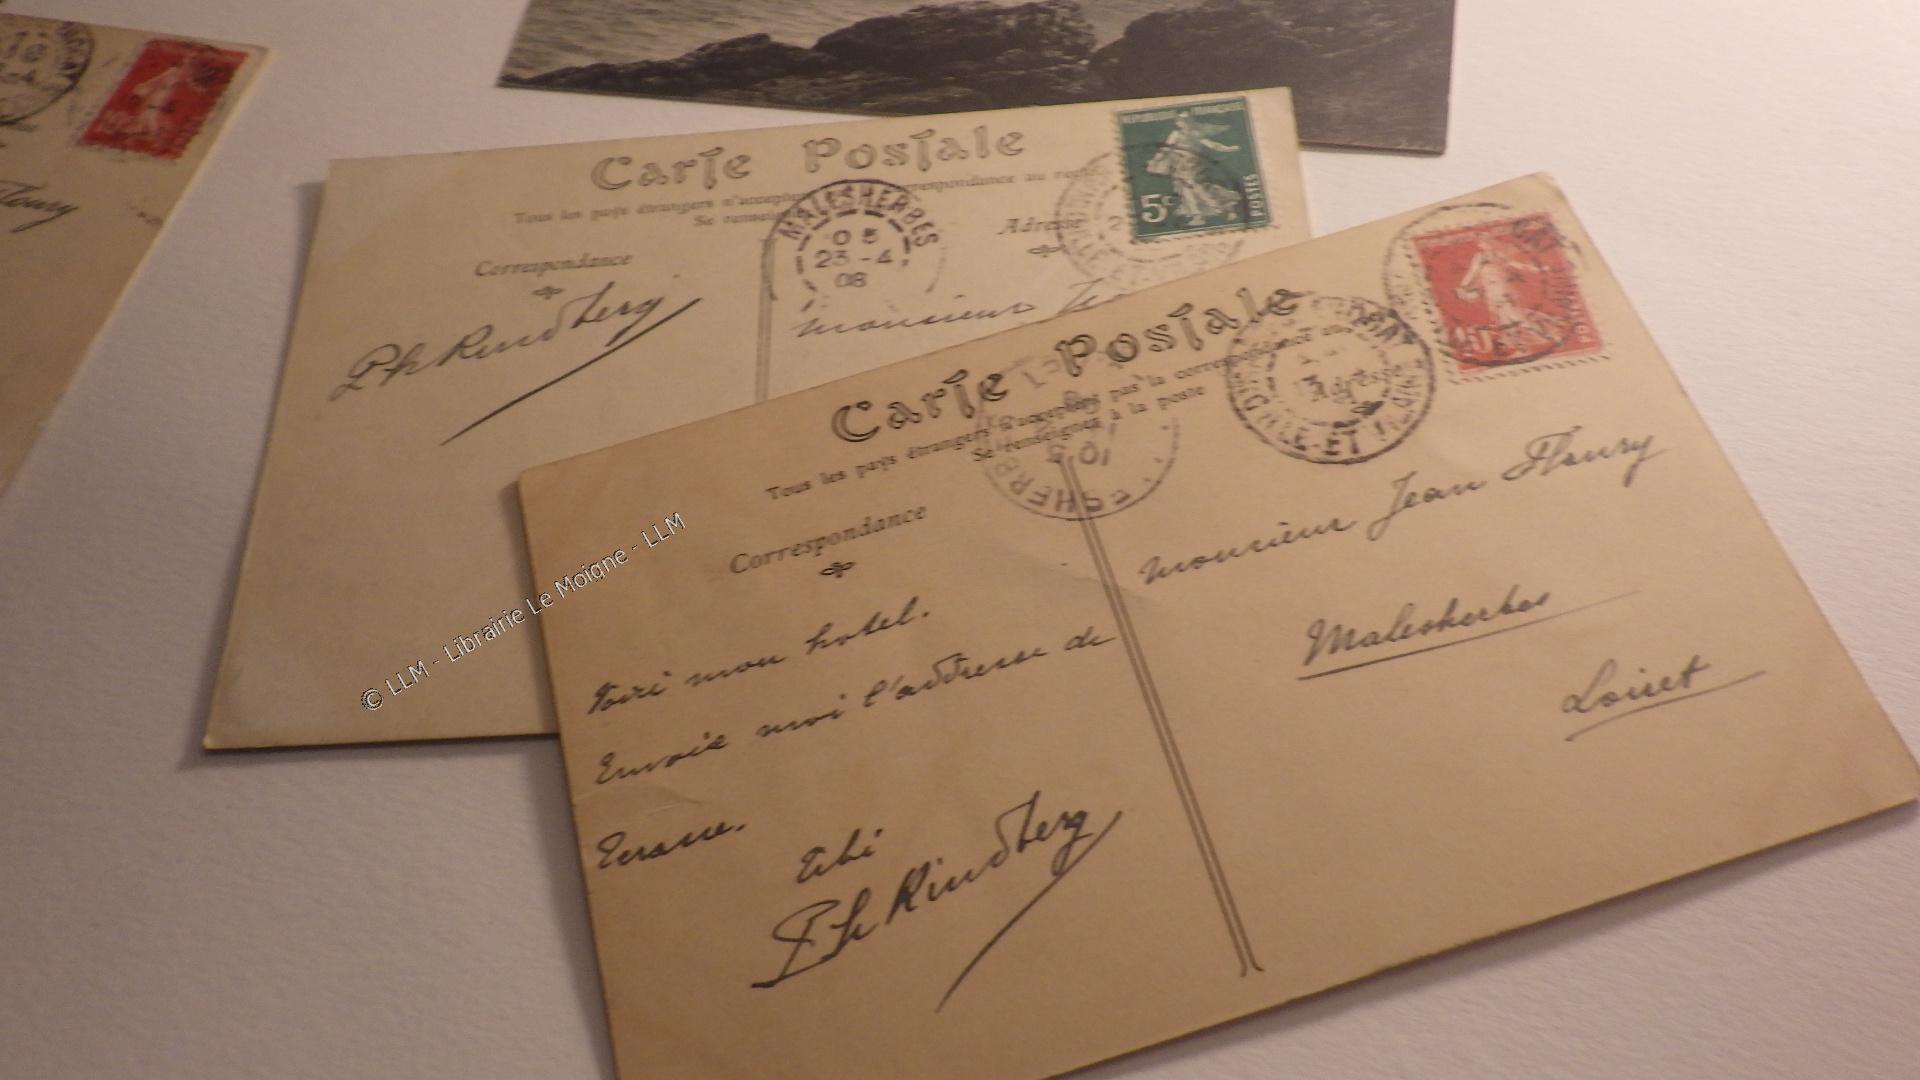 Fleury
Carte Postale
Tous les pays étrangers n'acceptent
correspondance au recto
Se renseigner
Correspondance
Adresse
MALESHERBES
23-4
08
REPUBLIQUE FRANÇAISE
5c
POSTES
Ph Rindberg
Monsieur
Carte Postale
Tous les pays étrangers n'acceptent pas la correspondance au
Se renseigner à la poste
Correspondance
Adresse
Voici mon hotel.
Envoie moi l'addresse de
Monsieur Jean Fleury
Malesherbes
Loiret
Ph Rindberg
© LLM - Librairie Le Moigne - LLM